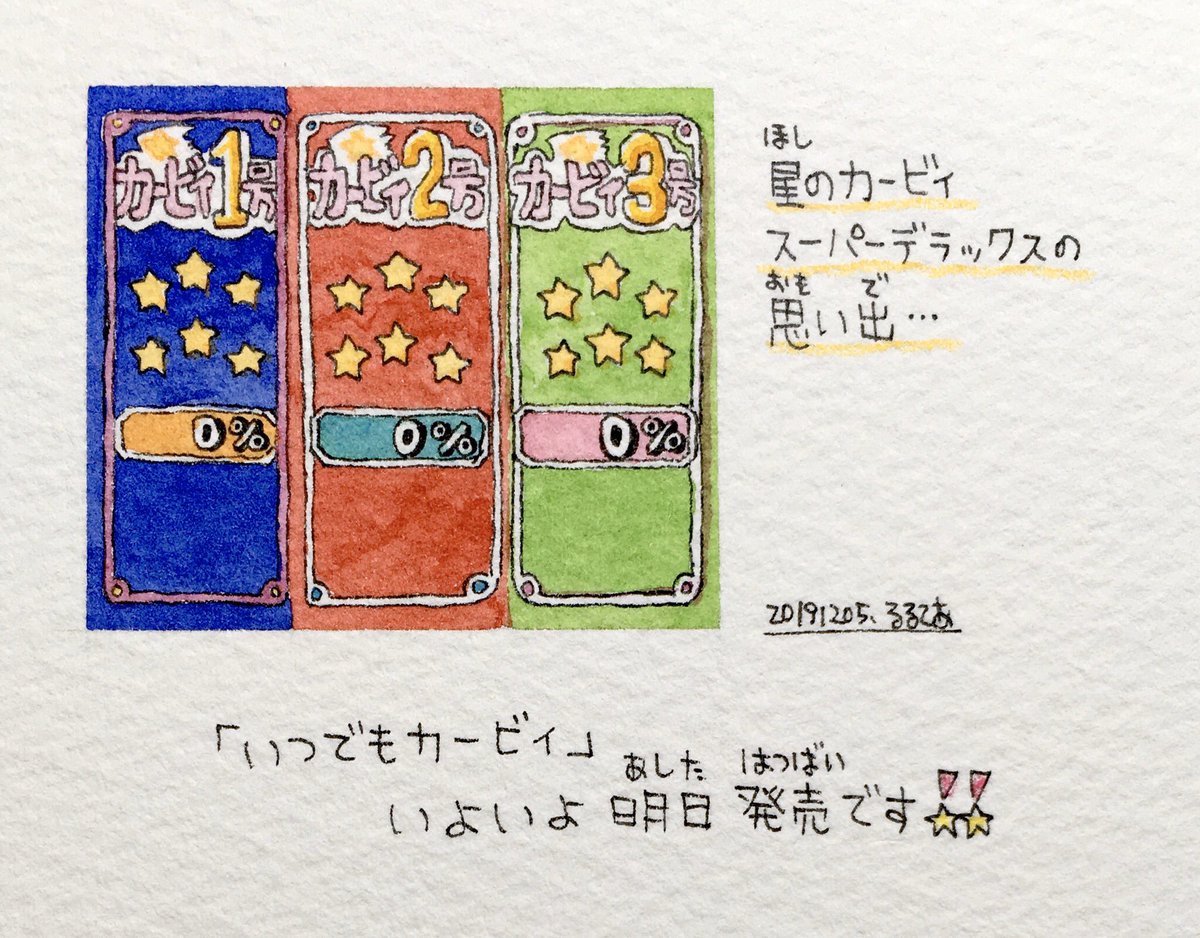 カービィ1号
カービィ2号
カービィ3号
0%
0%
0%
ほし
星のカービィ
スーパーデラックスの
おも で
思い出…
20191205. るるてあ
「いつでもカービィ」
あした はつばい
いよいよ 明日 発売です!!